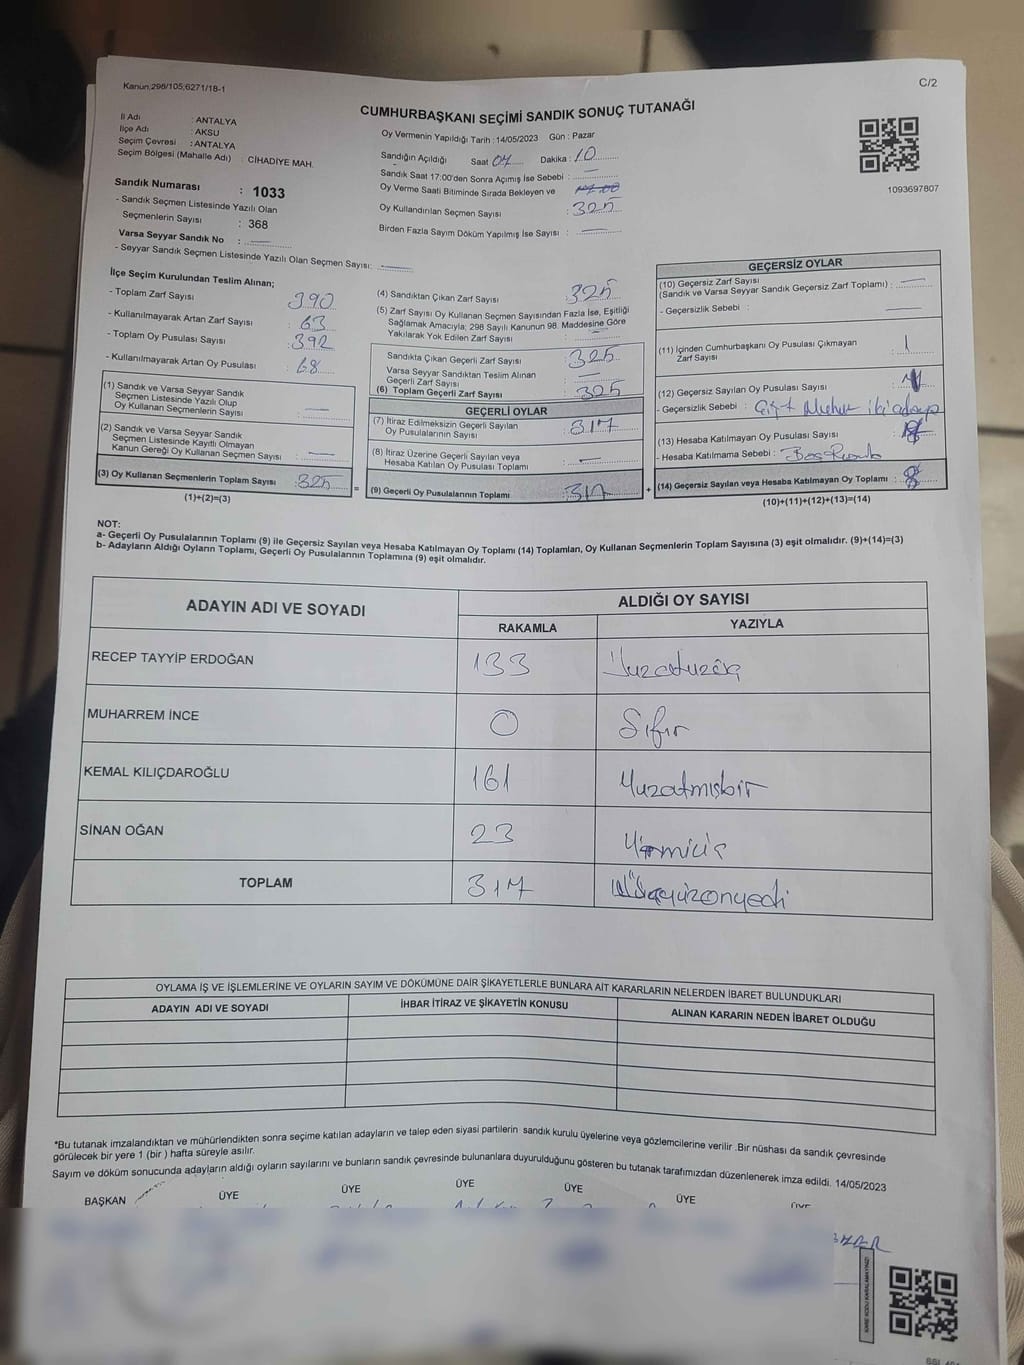 Kanun;298/105;6271/18-1
C/2
CUMHURBAŞKANI SEÇİMİ SANDIK SONUÇ TUTANAĞI
İl Adı : ANTALYA
İlçe Adı : AKSU
Seçim Çevresi : ANTALYA
Seçim Bölgesi (Mahalle Adı) : CİHADİYE MAH.
Sandık Numarası : 1033
- Sandık Seçmen Listesinde Yazılı Olan
Seçmenlerin Sayısı : 368
Varsa Seyyar Sandık No : —
- Seyyar Sandık Seçmen Listesinde Yazılı Olan Seçmen Sayısı: —
Oy Vermenin Yapıldığı Tarih : 14/05/2023 Gün : Pazar
Sandığın Açıldığı Saat 04 Dakika : 10
Sandık Saat 17:00'den Sonra Açımış İse Sebebi : —
Oy Verme Saati Bitiminde Sırada Bekleyen ve
Oy Kullandırılan Seçmen Sayısı : 325
Birden Fazla Sayım Döküm Yapılmış İse Sayısı : —
1093697807
İlçe Seçim Kurulundan Teslim Alınan;
- Toplam Zarf Sayısı 390
- Kullanılmayarak Artan Zarf Sayısı : 63
- Toplam Oy Pusulası Sayısı : 392
- Kullanılmayarak Artan Oy Pusulası : 68
(1) Sandık ve Varsa Seyyar Sandık
Seçmen Listesinde Yazılı Olup
Oy Kullanan Seçmenlerin Sayısı : —
(2) Sandık ve Varsa Seyyar Sandık
Seçmen Listesinde Kayıtlı Olmayan
Kanun Gereği Oy Kullanan Seçmen Sayısı : —
(3) Oy Kullanan Seçmenlerin Toplam Sayısı : 325
(1)+(2)=(3)
=
(4) Sandıktan Çıkan Zarf Sayısı : 325
(5) Zarf Sayısı Oy Kullanan Seçmen Sayısından Fazla İse, Eşitliği
Sağlamak Amacıyla; 298 Sayılı Kanunun 98. Maddesine Göre
Yakılarak Yok Edilen Zarf Sayısı : —
Sandıkta Çıkan Geçerli Zarf Sayısı : 325
Varsa Seyyar Sandıktan Teslim Alınan
Geçerli Zarf Sayısı : —
(6) Toplam Geçerli Zarf Sayısı : 325
GEÇERLİ OYLAR
(7) İtiraz Edilmeksizin Geçerli Sayılan
Oy Pusulalarının Sayısı : 317
(8) İtiraz Üzerine Geçerli Sayılan veya
Hesaba Katılan Oy Pusulası Toplamı : —
(9) Geçerli Oy Pusulalarının Toplamı : 317
+
GEÇERSİZ OYLAR
(10) Geçersiz Zarf Sayısı
(Sandık ve Varsa Seyyar Sandık Geçersiz Zarf Toplamı) : —
- Geçersizlik Sebebi : —
(11) İçinden Cumhurbaşkanı Oy Pusulası Çıkmayan
Zarf Sayısı : 1
(12) Geçersiz Sayılan Oy Pusulası Sayısı :
- Geçersizlik Sebebi : Çift Muhur iki adaya
(13) Hesaba Katılmayan Oy Pusulası Sayısı :
- Hesaba Katılmama Sebebi :
(14) Geçersiz Sayılan veya Hesaba Katılmayan Oy Toplamı : 8
(10)+(11)+(12)+(13)=(14)
NOT:
a- Geçerli Oy Pusulalarının Toplamı (9) ile Geçersiz Sayılan veya Hesaba Katılmayan Oy Toplamı (14) Toplamları, Oy Kullanan Seçmenlerin Toplam Sayısına (3) eşit olmalıdır. (9)+(14)=(3)
b- Adayların Aldığı Oyların Toplamı, Geçerli Oy Pusulalarının Toplamına (9) eşit olmalıdır.
ADAYIN ADI VE SOYADI
ALDIĞI OY SAYISI
RAKAMLA YAZIYLA
RECEP TAYYİP ERDOĞAN 133 Yuzotuzüç
MUHARREM İNCE 0 Sıfır
KEMAL KILIÇDAROĞLU 161 Yuzatmışbir
SİNAN OĞAN 23 Yirmiüç
TOPLAM 317 Üçyüzonyedi
OYLAMA İŞ VE İŞLEMLERİNE VE OYLARIN SAYIM VE DÖKÜMÜNE DAİR ŞİKAYETLERLE BUNLARA AİT KARARLARIN NELERDEN İBARET BULUNDUKLARI
ADAYIN ADI VE SOYADI İHBAR İTİRAZ VE ŞİKAYETİN KONUSU ALINAN KARARIN NEDEN İBARET OLDUĞU
*Bu tutanak imzalandıktan ve mühürlendikten sonra seçime katılan adayların ve talep eden siyasi partilerin sandık kurulu üyelerine veya gözlemcilerine verilir .Bir nüshası da sandık çevresinde
görülecek bir yere 1 (bir ) hafta süreyle asılır.
Sayım ve döküm sonucunda adayların aldığı oyların sayılarını ve bunların sandık çevresinde bulunanlara duyurulduğunu gösteren bu tutanak tarafımızdan düzenlenerek imza edildi. 14/05/2023
BAŞKAN ÜYE ÜYE ÜYE ÜYE ÜYE ÜYE